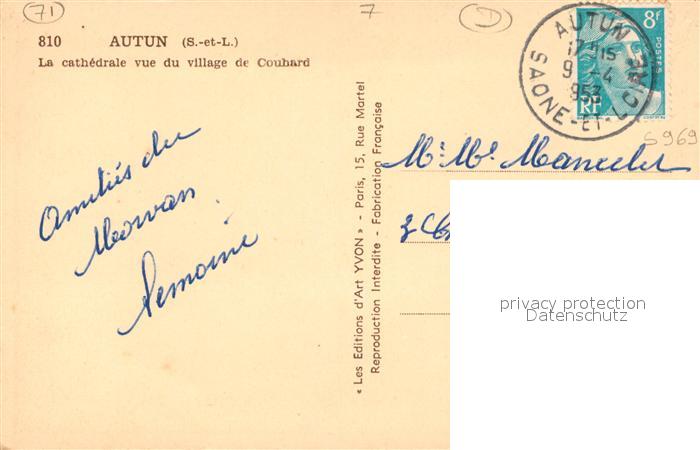 71
7
D
810 AUTUN (S.-et-L.)
La cathédrale vue du village de Couhard
AUTUN
17H15
9 -4
953
SAONE-ET-LOIRE
8F
POSTES
RF
S969
Amitiés du
Morvan.
Lemoine
« Les Editions d'Art YVON » - Paris, 15, Rue Martel
Reproduction Interdite - Fabrication Française
Mr Me
privacy protection
Datenschutz